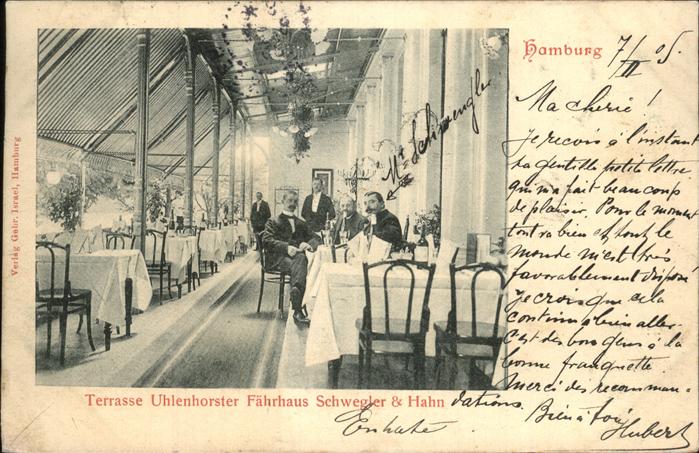 Hamburg 7/II 05.
Ma chérie!
Je recois à l'instant
ta gentille petite lettre
qui m'a fait beaucoup
de plaisir. Pour le moment
tout va bien et tout le
monde m'est très
favorablement dispose
je crois que cela
continu à bien aller.
C'est des bons gens à la
bonne franquette.
Merci des recomman-
dations. Bien à toi
Hubert
En hate
Mr. Schwengler
Verlag Gebr. Israel, Hamburg
Terrasse Uhlenhorster Fährhaus Schwegler & Hahn